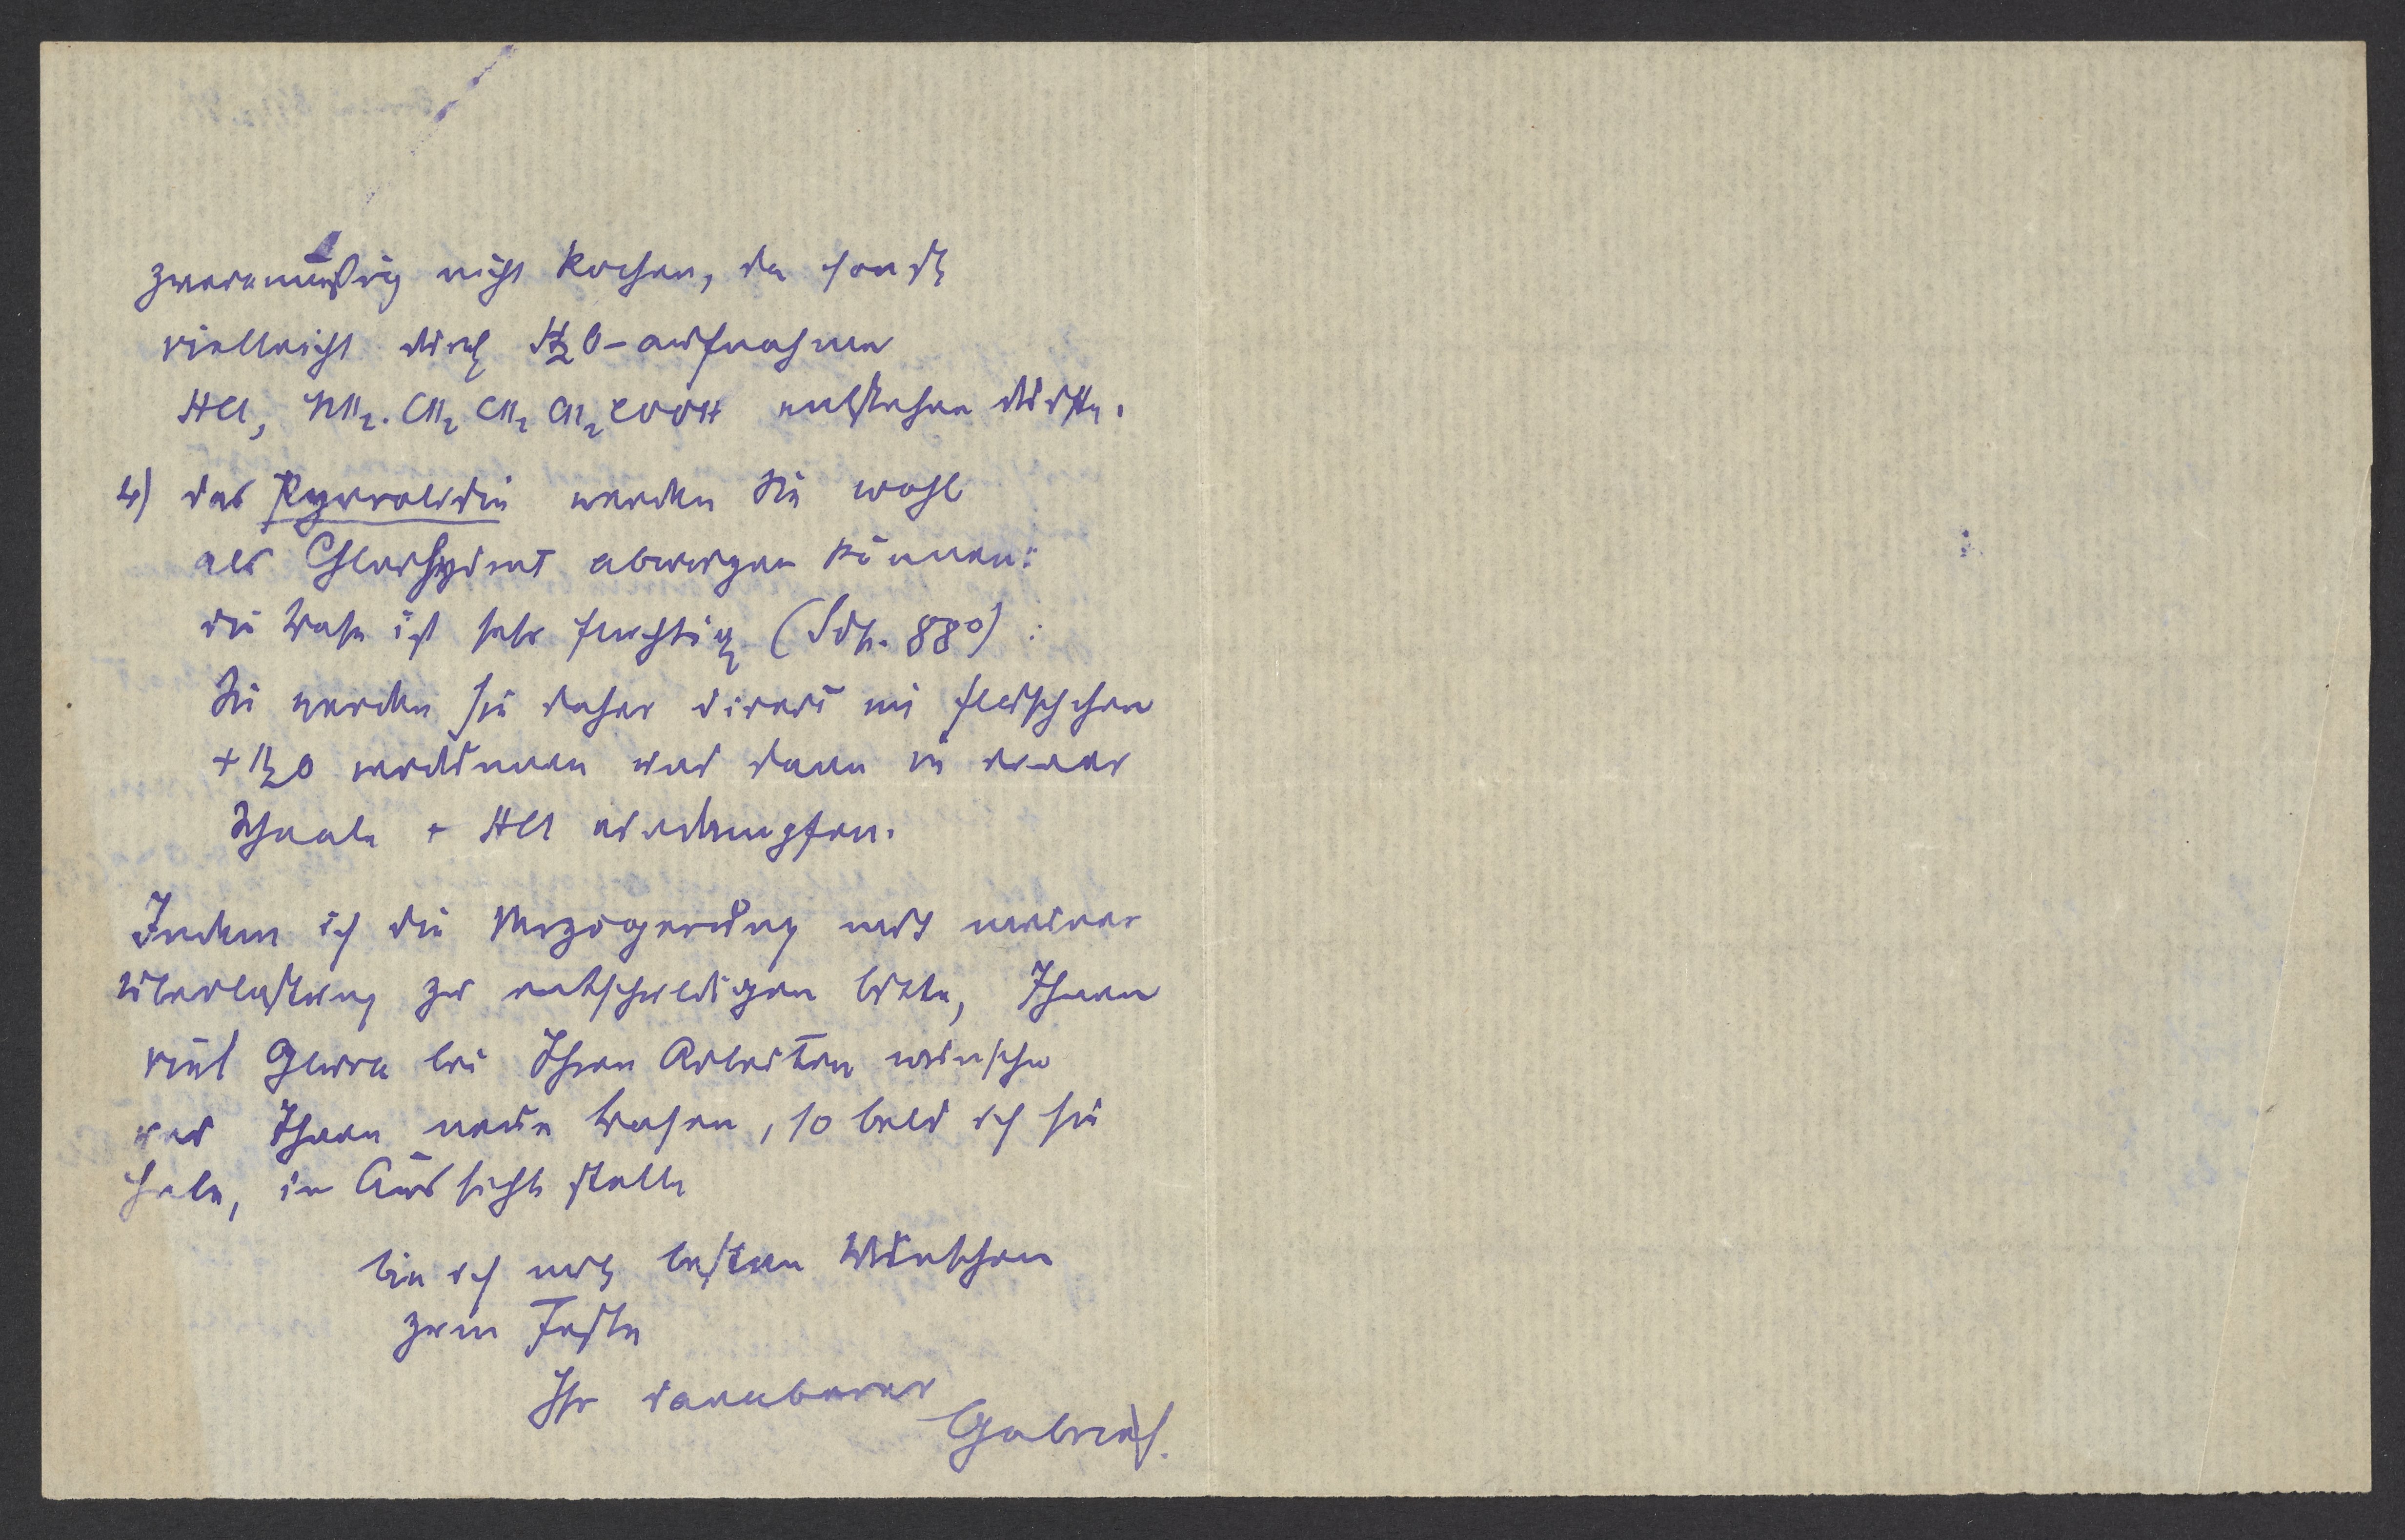 zweckmäßig nicht kochen, da sonst
vielleicht durch H2O-aufnahme
HCl, NH2. CH2 CH2 CH2 COOH entstehen dürfte.
4) das Pyrrolidin werden Sie wohl
als Chlorhydrat abwägen können:
die Base ist sehr flüchtig (Sdp. 88°):
Sie werden sie daher direct im fläschchen
+ H2O verdünnen und dann in einer
Schaale + HCl eindampfen.
Indem ich die Verzögerung mit meiner
Überlastung zu entschuldigen bitte, Ihnen
viel Glück bei Ihren Arbeiten wünsche
und Ihnen neue Basen, so bald ich sie
habe, in Aussicht stelle
bin ich mit besten Wünschen
zum Feste
Ihr dankbarer
Gabriel.